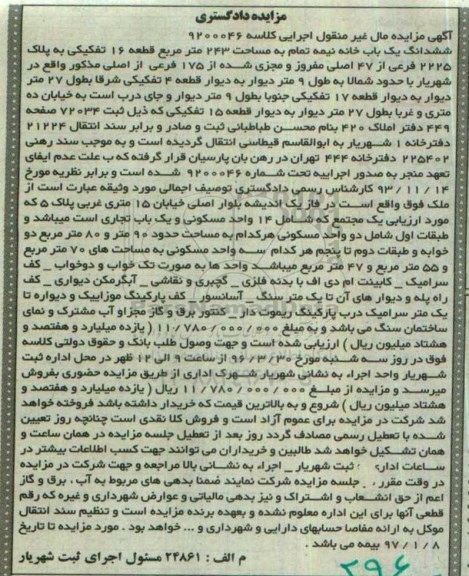 مزایده دادگستری
آگهی مزایده مال غیر منقول اجرایی کلاسه ۹۲۰۰۰۴۶
ششدانگ یک باب خانه نیمه تمام به مساحت ۲۴۳ متر مربع قطعه ۱۶ تفکیکی به پلاک
۲۲۲۵ فرعی از ۴۷ اصلی مفروز و مجزی شده از ۱۷۵ فرعی از اصلی مذکور واقع در
شهریار با حدود شمالا به طول ۹ متر دیوار به دیوار قطعه ۴ تفکیکی شرقا بطول ۲۷ متر
دیوار به دیوار قطعه ۱۷ تفکیکی جنوبا بطول ۹ متر دیوار و جای درب است به خیابان ده
متری و غربا بطول ۲۷ متر دیوار به دیوار قطعه ۱۵ تفکیکی که ذیل ثبت ۷۲۰۳۴ صفحه
۴۴۹ دفتر املاک ۴۲۰ بنام محسن طباطبائی ثبت و صادر و برابر سند انتقال ۲۱۲۲۴
دفترخانه ۱ شهریار به ابوالقاسم قیطاسی انتقال گردیده است و به موجب سند رهنی
۲۲۵۴۰۲ دفترخانه ۴۴۴ تهران در رهن بان پارسیان قرار گرفته که ب علت عدم ایفای
تعهد منجر به صدور اجراییه تحت شماره ۹۲۰۰۰۴۶ شده است و برابر نظریه مورخ
۹۳/۱۱/۱۴ کارشناس رسمی دادگستری توصیف اجمالی مورد وثیقه عبارت است از
ملک فوق واقع است در فاز یک اندیشه بلوار اصلی خیابان ۱۵ متری غربی پلاک ۵ که
مورد ارزیابی یک مجتمع که شامل ۱۴ واحد مسکونی و یک باب تجاری است میباشد و
طبقات اول شامل دو واحد مسکونی هرکدام به مساحت حدود ۹۰ متر و ۸۰ متر مربع دو
خوابه و طبقات دوم تا پنجم هر کدام سه واحد مسکونی به مساحت های ۷۰ متر مربع
و ۵۵ متر مربع و ۴۷ متر مربع میباشد واحد ها به صورت تک خواب و دوخواب _ کف
سرامیک _ کابینت ام دی اف با بدنه فلزی _ گچبری و نقاشی _ آبگرمکن دیواری _ کف
راه پله و دیوار های آن تا یک متر سنگ _ آسانسور _ کف پارکینگ موزاییک و دیواره تا
یک متر سرامیک درب پارکینگ ریموت دار _ کنتور برق و گاز مجزاو آب مشترک و نمای
ساختمان سنگ می باشد و به مبلغ ۱۱/۷۸۰/۰۰۰/۰۰۰ ( یازده میلیارد و هفتصد و
هشتاد میلیون ریال ) ارزیابی شده است و جهت وصول طلب بانک و حقوق دولتی کلاسه
فوق در روز سه شنبه مورخ ۹۶/۳/۳۰ از ساعت ۹ الی ۱۲ ظهر در محل اداره ثبت
شهریار واحد اجراء به نشانی شهریار شهرک اداری از طریق مزایده حضوری بفروش
میرسد و مزایده از مبلغ ۱۱/۷۸۰/۰۰۰/۰۰۰ ریال ( یازده میلیارد و هفتصد و
هشتاد میلیون ریال ) شروع و به بالاترین قیمت که خریدار داشته باشد فروخته خواهد
شد شرکت در مزایده برای عموم آزاد است و فروش کلا نقدی است چنانچه روز تعیین
شده با تعطیل رسمی مصادف گردد روز بعد از تعطیل جلسه مزایده در همان ساعت و
همان تشکیل خواهد شد طالبین و خریداران می توانند جهت کسب اطلاعات بیشتر در
ساعات اداری ثبت شهریار _ اجراء به نشانی بالا مراجعه و جهت شرکت در مزایده
در وقت مقرر، جلسه مزایده شرکت نمایند ضمنا بدهی های مربوط به آب ، برق و گاز
اعم از حق انشعاب و اشتراک و نیز بدهی مالیاتی و عوارض شهرداری و غیره که رقم
قطعی آنها برای این اداره معلوم نشده و بعهده برنده مزایده است و تنظیم سند انتقال
موکل به ارائه مفاصا حسابهای دارایی و شهرداری و ... خواهد بود . مورد مزایده تا تاریخ
۹۷/۱/۸ بیمه می باشد .
م الف : ۲۴۸۶۱ مسئول اجرای ثبت شهریار
۲۹۶